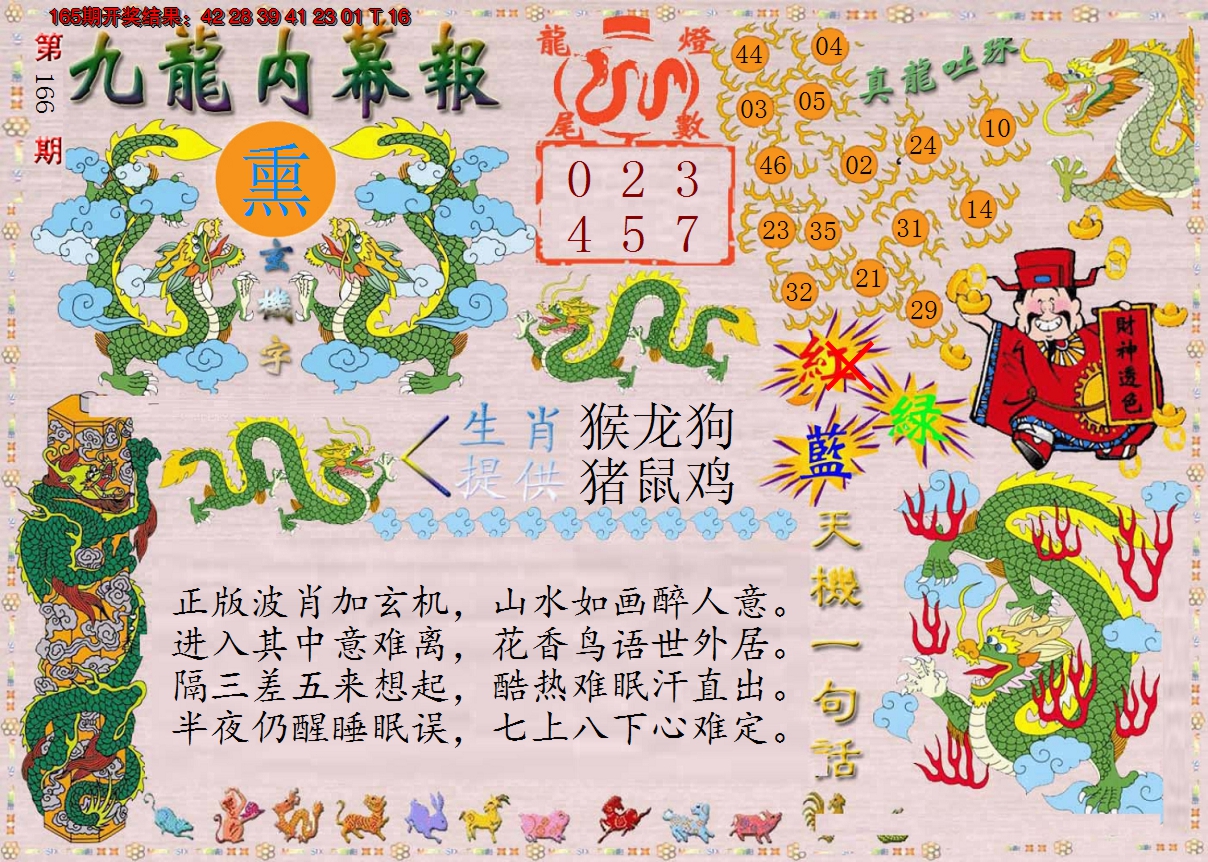 165期开奖结果：42 28 39 41 23 01 T 16
第166期
九龍内幕報
熏
玄機字
龍燈
尾數
0 2 3
4 5 7
真龍吐珠
44 04
03 05
24 10
46 02
14
23 35 31
21
32 29
紅
綠
藍
財神透色
生肖 猴龙狗
提供 猪鼠鸡
天機一句話
正版波肖加玄机，山水如画醉人意。
进入其中意难离，花香鸟语世外居。
隔三差五来想起，酷热难眠汗直出。
半夜仍醒睡眠误，七上八下心难定。